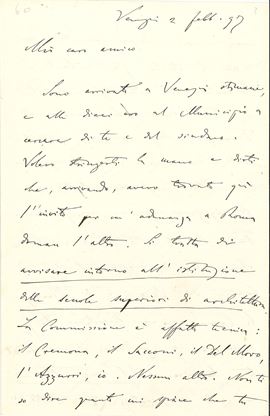 Venezia 2 febb. 97
Mio caro amico
Sono arrivato a Venezia stamane,
e alle dieci ero al Municipio a
cercare di te e del sindaco.
Volevo stringerti la mano e dirti
che, arrivando, avevo trovato qui
l'invito per un'adunanza a Roma
doman l'altro. Si tratta di
avvisare intorno all'istituzione
delle scuole superiori di architettura.
La Commissione è affatto tecnica:
il Cremona, il Sacconi, il Del Moro,
l'Azzurri, io. Nessun altro. Non ti
so dire quanto mi spiace che tu